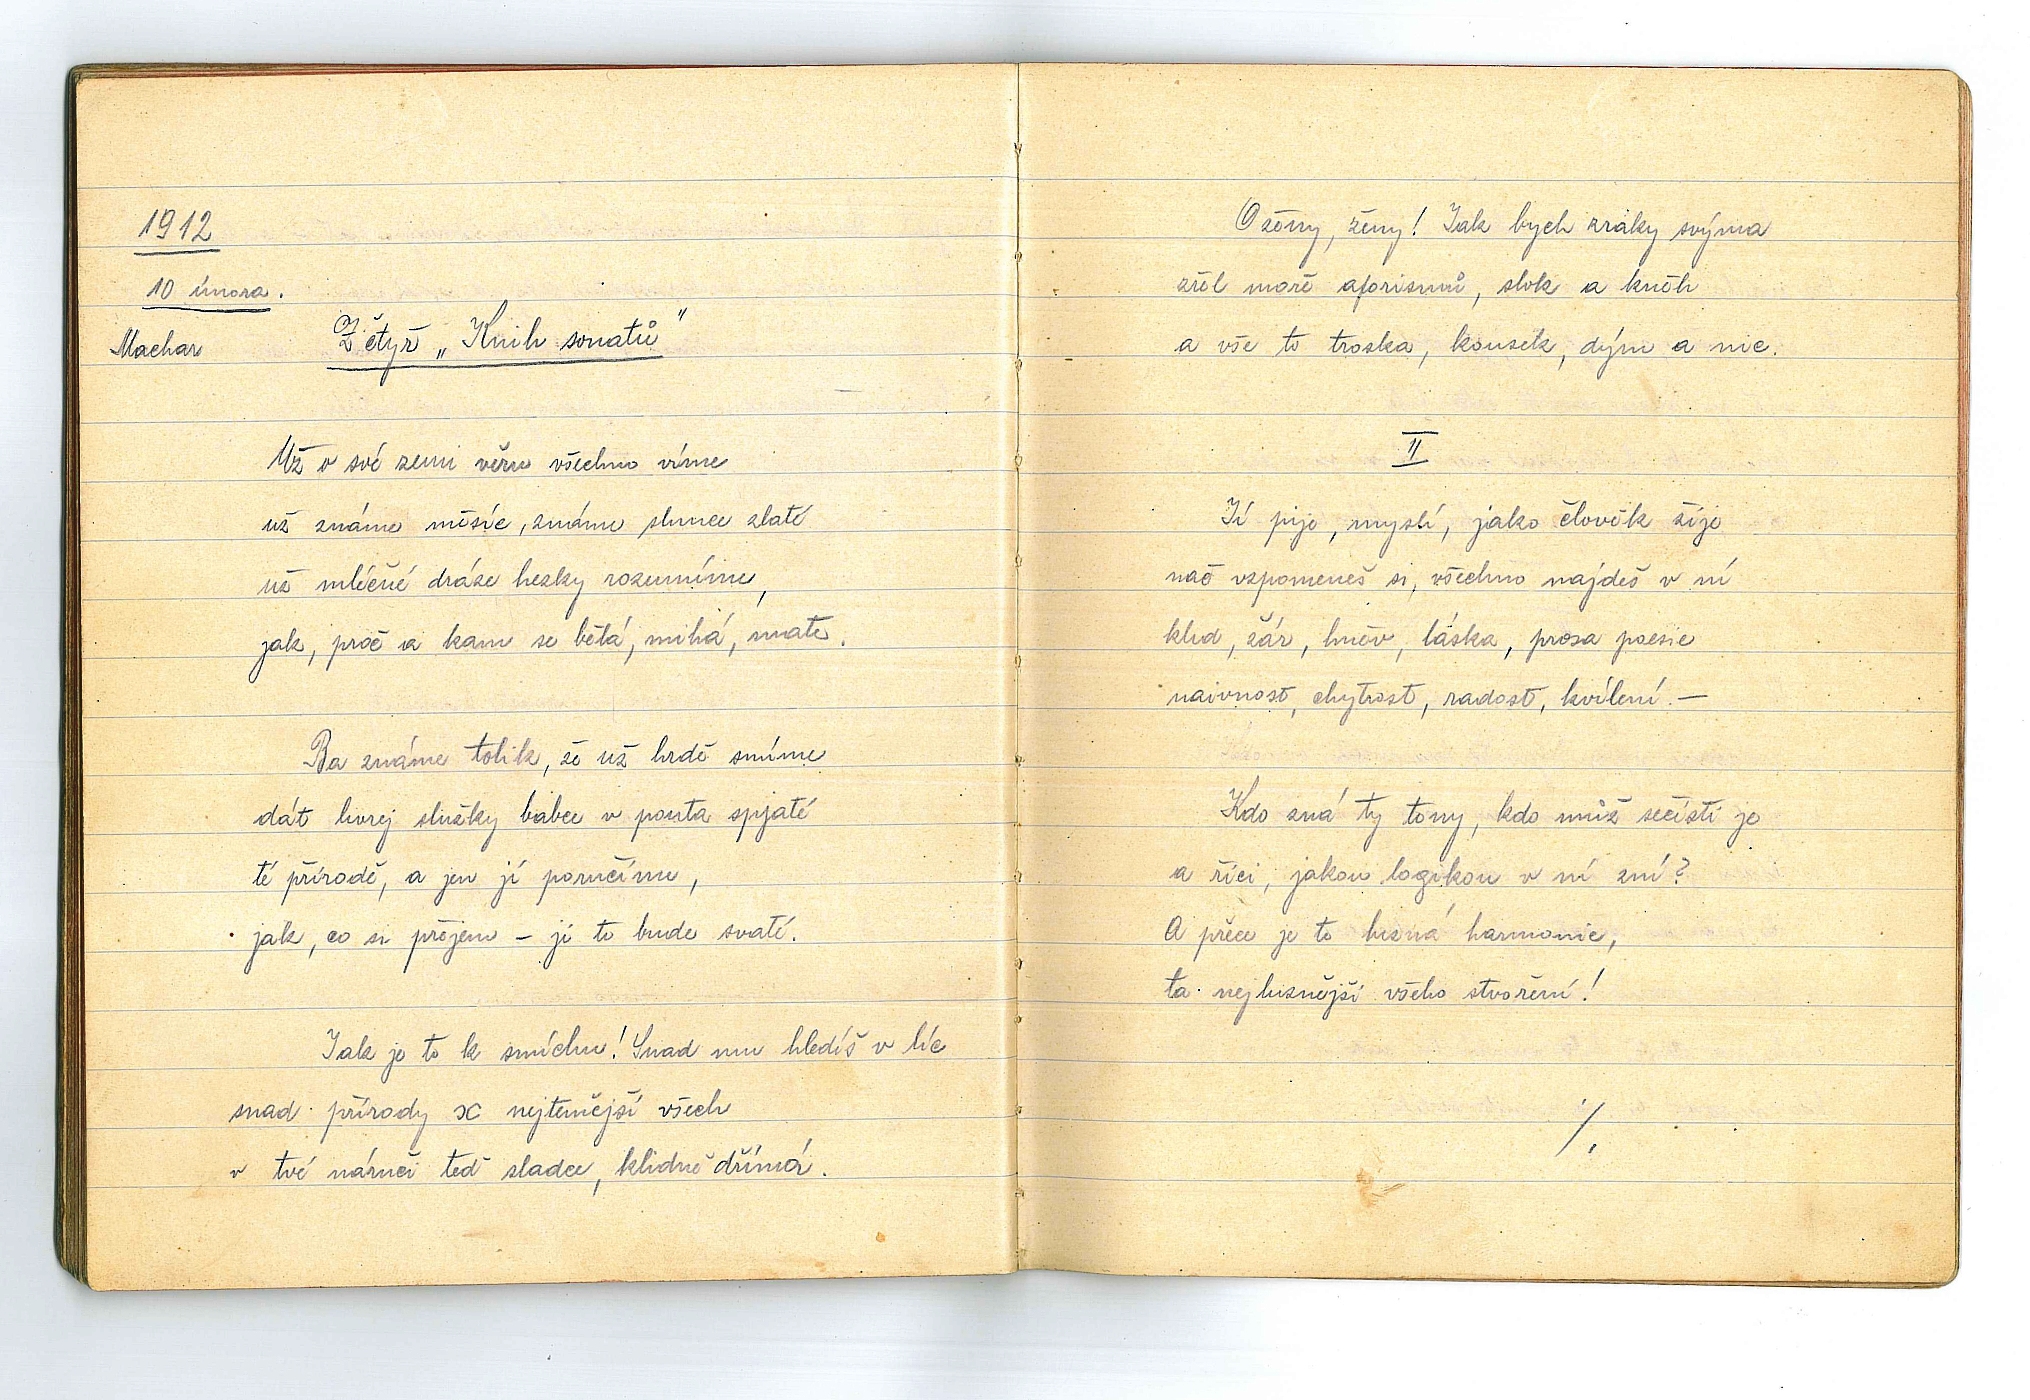 1912
10 února.
Machar
Z čtyř „Knih sonatů"
Už o své zemi věru všechno víme
už známe měsíc, známe slunce zlaté
už mléčné dráze hezky rozumíme,
jak, proč a kam se bělá, míhá, mate.
Ba známe tolik, že už hrdě smíme
dát livrej služky babce v pouta spjaté
té přírodě, a jen jí poručíme,
jak, co si přejem – jí to bude svaté.
Jak je to k smíchu! Snad mu hledíš v líc
snad přírody x nejtemější všech
v tvé náruči teď sladce, klidně dřímá.
O ženy, ženy! Jak bych zraky svýma
zřel moře aforismů, slok a kněh
a vše to troska, kousek, dým a nic.
II
Jí pije, myslí, jako člověk žije
nač vzpomeneš si, všechno najdeš v ní
klid, žár, hněv, láska, prosa poesie
naivnost, chytrost, radost, kvílení. –
Kdo zná ty tony, kdo můž sečísti je
a říci, jakou logikou v ní zní?
A přece je to luzná harmonie,
ta nejluznější všeho stvoření!
./.